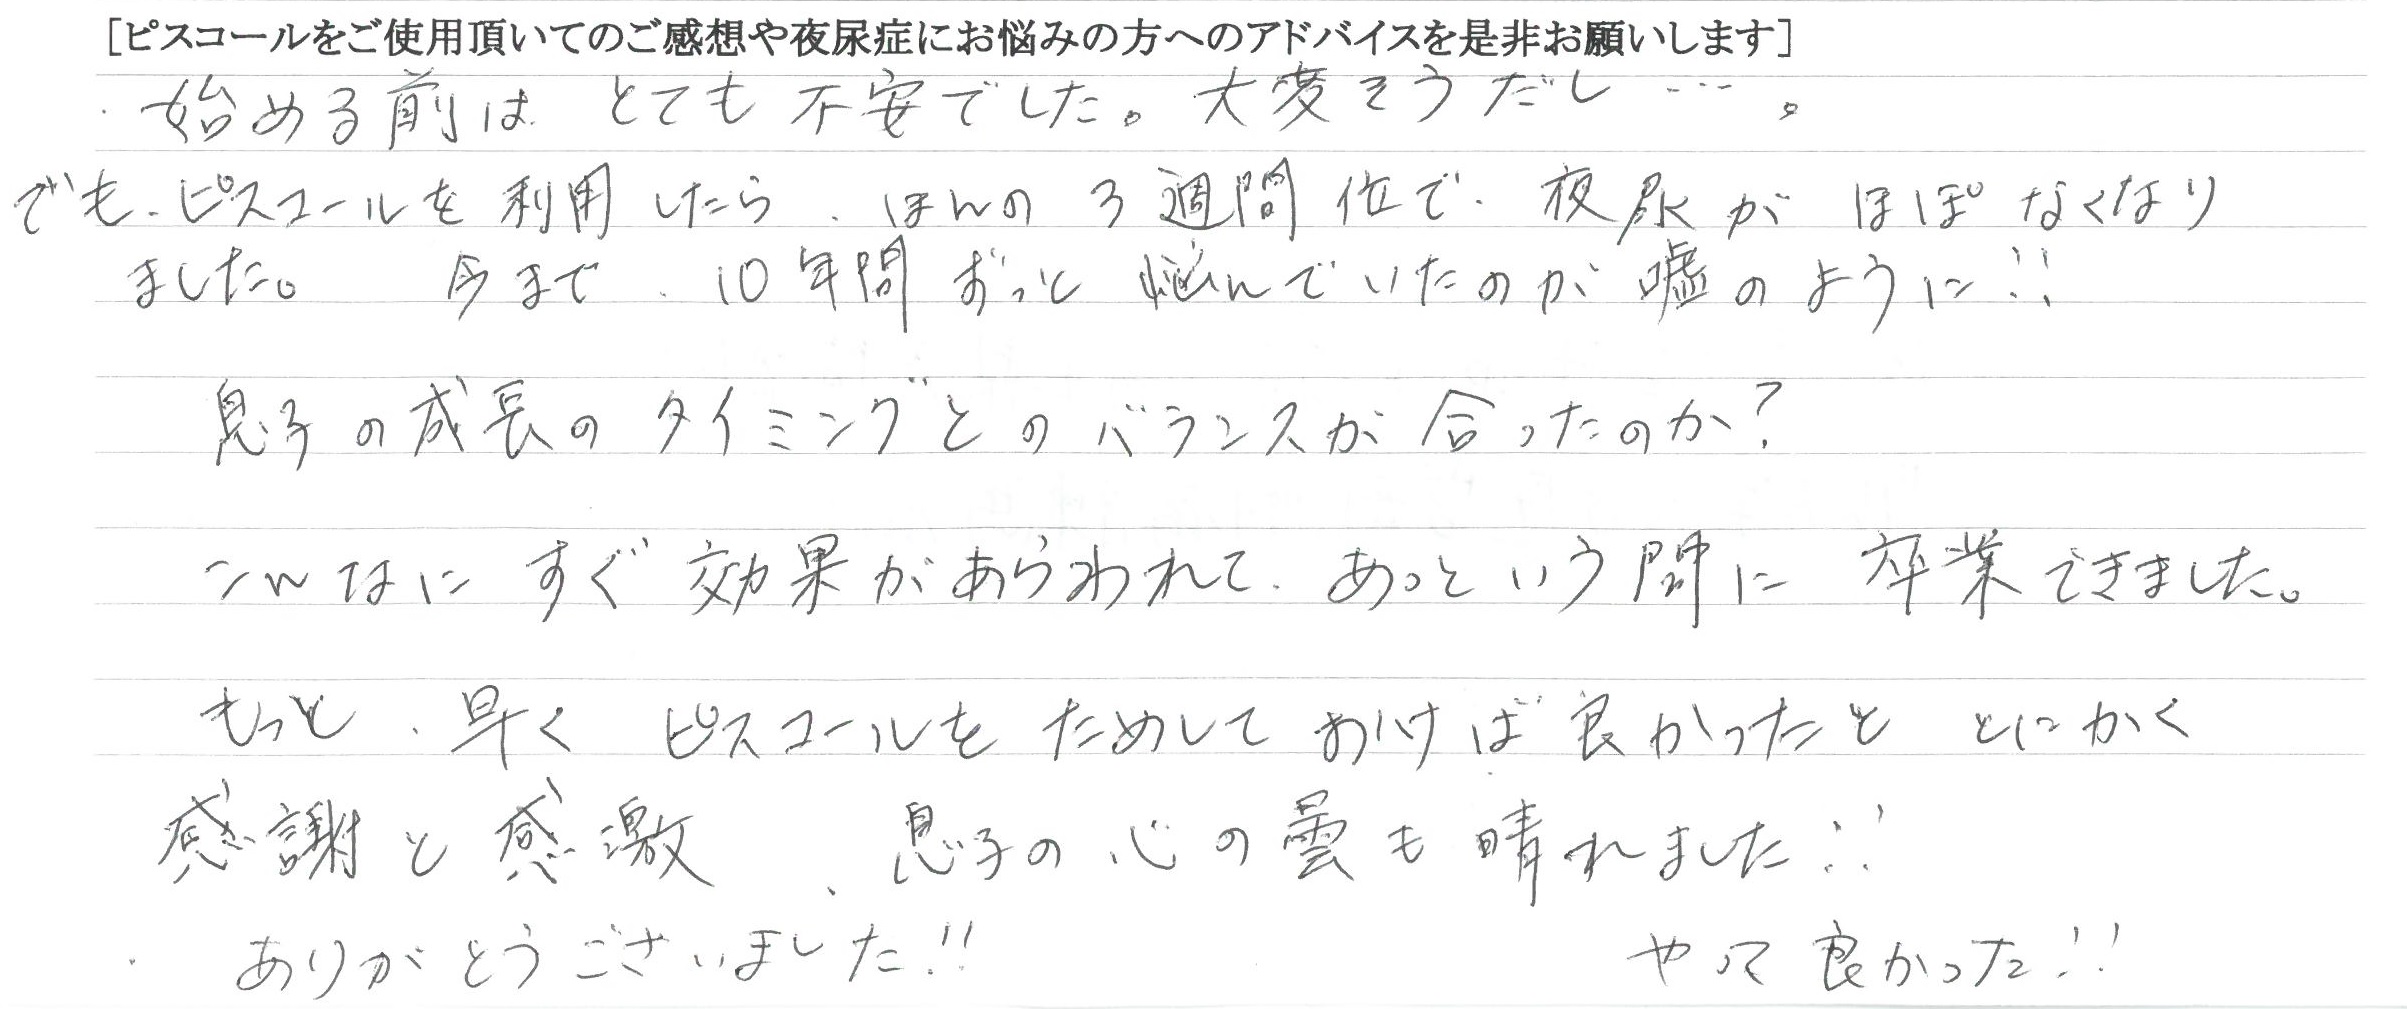 [ピスコールをご使用頂いてのご感想や夜尿症にお悩みの方へのアドバイスを是非お願いします]
始める前は とても 不安でした。大変そうだし…。
でも、ピスコールを利用したら、ほんの3週間位で、夜尿が ほぼ なくなり
ました。 今まで、10年間ずっと 悩んでいたのが嘘のように!!
息子の成長のタイミングとのバランスが合ったのか?
こんなに すぐ効果があらわれて、あっという間に 卒業できました。
もっと、早く ピスコールを ためして おけば良かったと とにかく
感謝と感激 、息子の心の曇も晴れました!!
ありがとうございました!! やって良かった!!